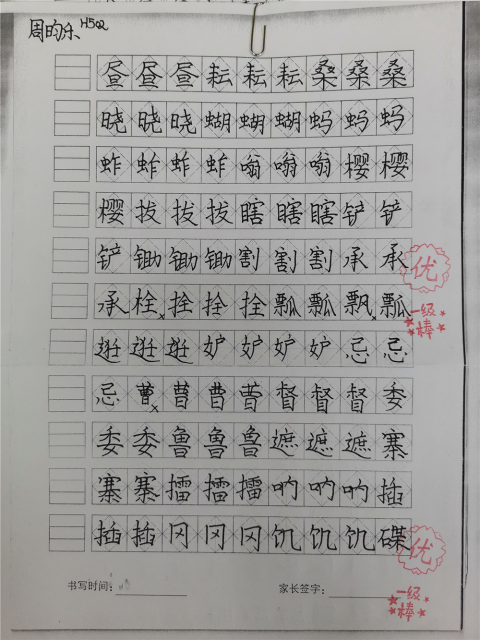 周昀乐 H502
昼昼昼耘耘耘桑桑桑
晓晓晓蝴蝴蝴蚂蚂蚂
蚱蚱蚱蚱嗡嗡嗡樱樱
樱拔拔拔瞎瞎瞎铲铲
铲锄锄锄割割割承承
优
承栓拴拴拴瓢瓢飘瓢
一级棒
逛逛逛妒妒妒妒忌忌
忌曹曹曹曹督督督委
委委鲁鲁鲁遮遮遮寨
寨寨擂擂擂吶吶吶插
插插冈冈冈饥饥饥碟
优
书写时间:
家长签字:
一级棒